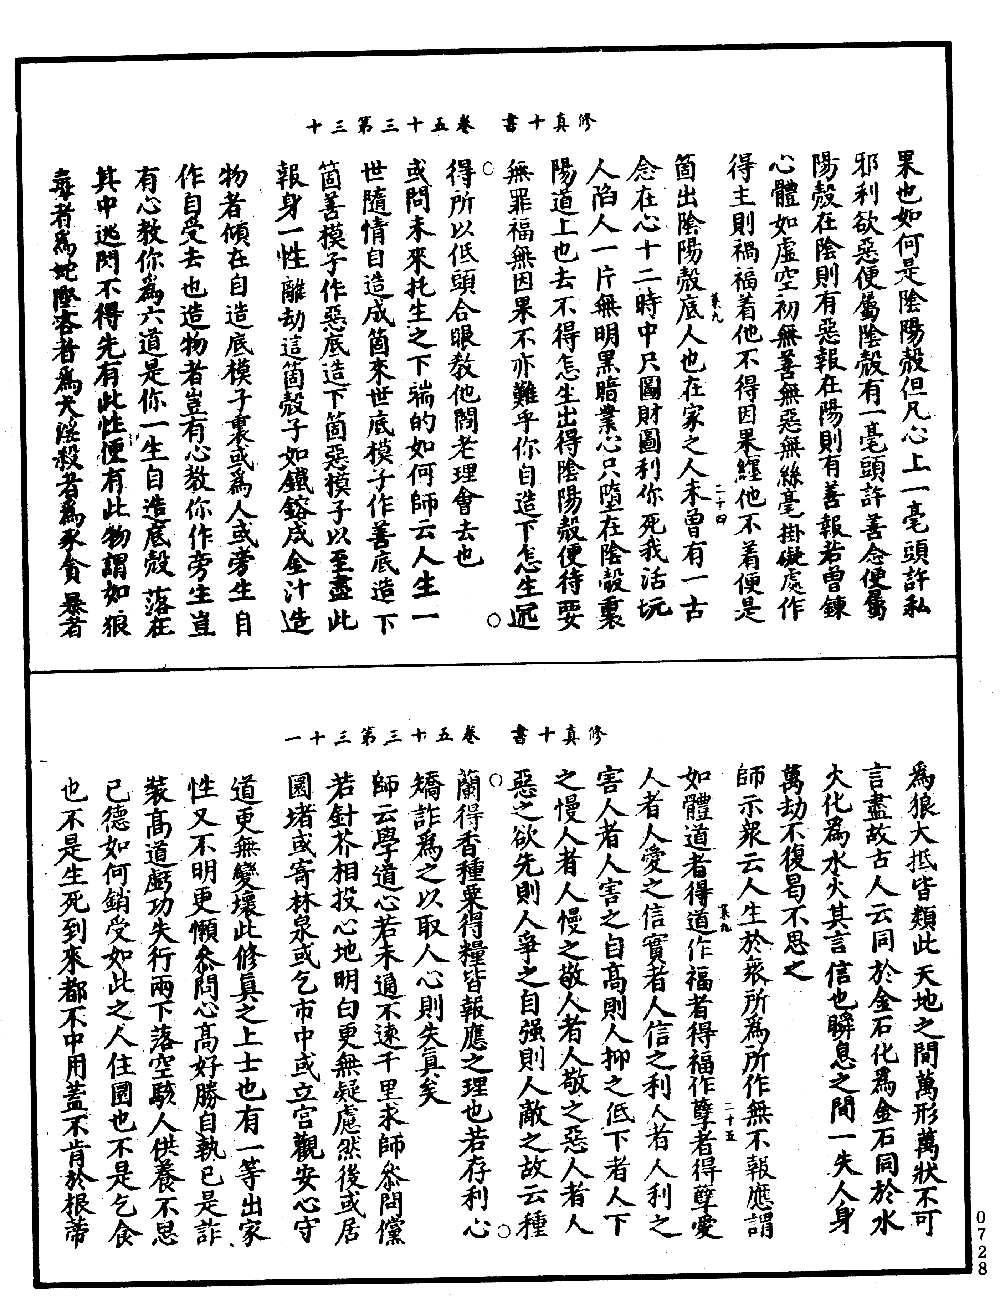 修真十書　卷五十三第三十
果也如何是陰陽殼但凡心上一毫頭許私
邪利欲惡便屬陰殼有一毫頭許善念便屬
陽殼在陰則有惡報在陽則有善報若曾鍊
心體如虛空初無善無惡無絲毫掛礙處作
得主則禍福着他不得因果纏他不着便是
箇出陰陽殼底人也在家之人未曾有一古
菓九
二十四
念在心十二時中只圖財圖利你死我活玩
人陷人一片無明黑暗業心只墮在陰殼裏
陽道上也去不得怎生出得陰陽殼便待要
無罪福無因果不亦難乎你自造下怎生逃
得所以低頭合眼教他閻老理會去也
或問未來托生之下端的如何師云人生一
世隨情自造成箇來世底模子作善底造下
箇善模子作惡底造下箇惡模子以至盡此
報身一性離劫這箇殼子如鐵鎔成金汁造
物者傾在自造底模子裏或爲人或旁生自
作自受去也造物者豈有心教你作旁生豈
有心教你爲六道是你一生自造底殼落在
其中逃閃不得先有此性便有此物謂如狠
毒者爲蛇墜吝者爲犬淫殺者爲豕貪暴者
修真十書　卷五十三第三十一
爲狼大抵皆類此天地之間萬形萬狀不可
言盡故古人云同於金石化爲金石同於水
火化爲水火其言信也瞬息之間一失人身
萬劫不復曷不思之
師示衆云人生於衆所爲所作無不報應謂
如體道者得道作福者得福作孽者得孽愛
菓九
二十五
人者人愛之信實者人信之利人者人利之
害人者人害之自高則人抑之低下者人下
之慢人者人慢之敬人者人敬之惡人者人
惡之欲先則人爭之自强則人敵之故云種
蘭得香種粟得糧皆報應之理也若存利心
矯詐爲之以取人心則失真矣
師云學道心若未通不遠千里求師叅問儻
若針芥相投心地明白更無疑慮然後或居
圜堵或寄林泉或乞市中或立宫觀安心守
道更無變壞此修真之上士也有一等出家
性又不明更懶叅問心高好勝自執已是詐
裝高道虧功失行兩下落空騃人供養不思
已德如何銷受如此之人住圜也不是乞食
也不是生死到來都不中用蓋不肯於根蒂
0728